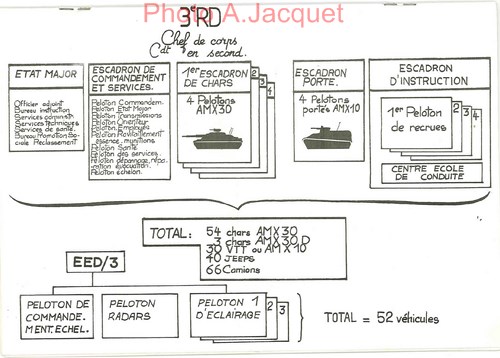 Photo A.Jacquet
3ᴱRD
Chef de corps
Cdt en second.
ETAT MAJOR
Officier adjoint
Bureau instruction
Services administr.
Services techniques
Services de santé.
Bureau Promotion So-
ciale Reclassement
ESCADRON DE
COMMANDEMENT
ET SERVICES.
Peloton Commandem.
Peloton Etat Major
Peloton Transmissions
Peloton Chantier
Peloton Employés
Peloton Ravitaillement
essence, munitions
Peloton Santé
Peloton des services.
Peloton dépannage, répa-
ration évacuation.
Peloton échelon.
1er ESCADRON
DE CHARS
2
3
4
4 Pelotons
AMX30
ESCADRON
PORTE.
4 Pelotons
portés AMX10
ESCADRON
D'INSTRUCTION
1er Peloton
de recrues
2
3
4
CENTRE ECOLE
DE CONDUITE
TOTAL: 54 chars AMX30
3 chars AMX30 D
30 VTT ou AMX10
40 JEEPS
66 Camions
EED/3
PELOTON DE
COMMANDE-
MENT. ECHEL.
PELOTON
RADARS
PELOTON 1
D'ECLAIRAGE
2
3
TOTAL = 52 véhicules